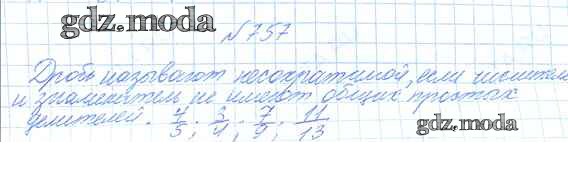 gdz.moda
№757
Дробь называют несократимой, если числитель
и знаменатель не имеют общих простых
делителей. 4/5; 3/4; 7/9; 11/13
gdz.moda